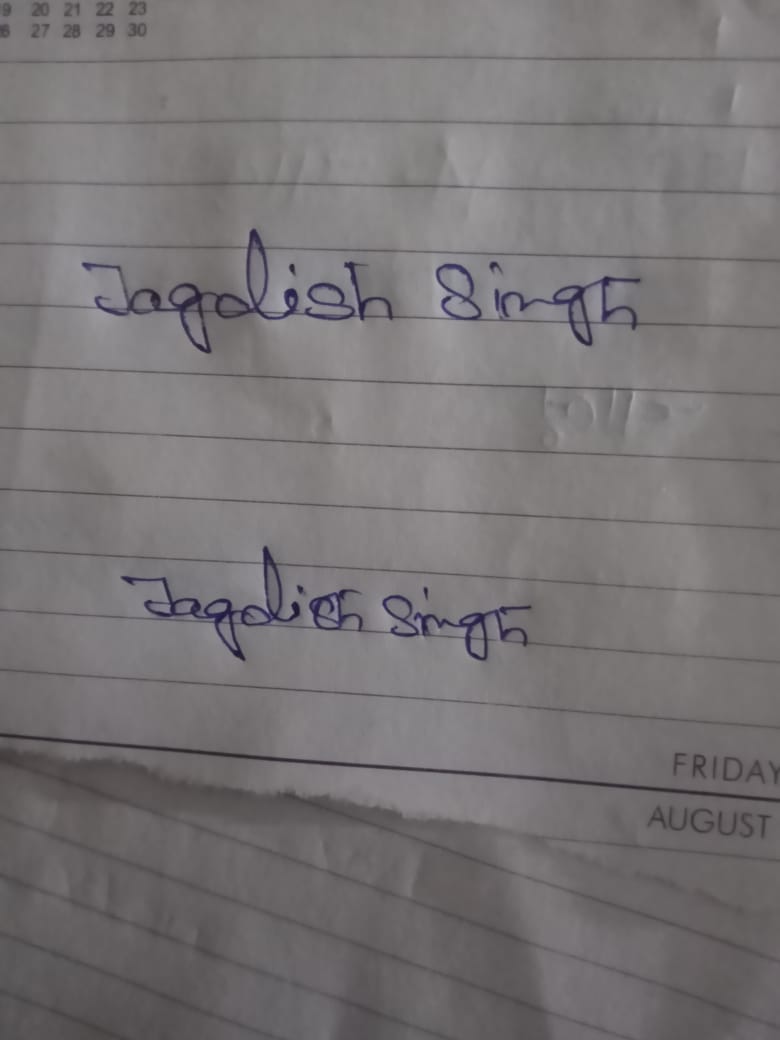 9 20 21 22 23
6 27 28 29 30
Jagdish Singh
Jagdish Singh
FRIDAY
AUGUST